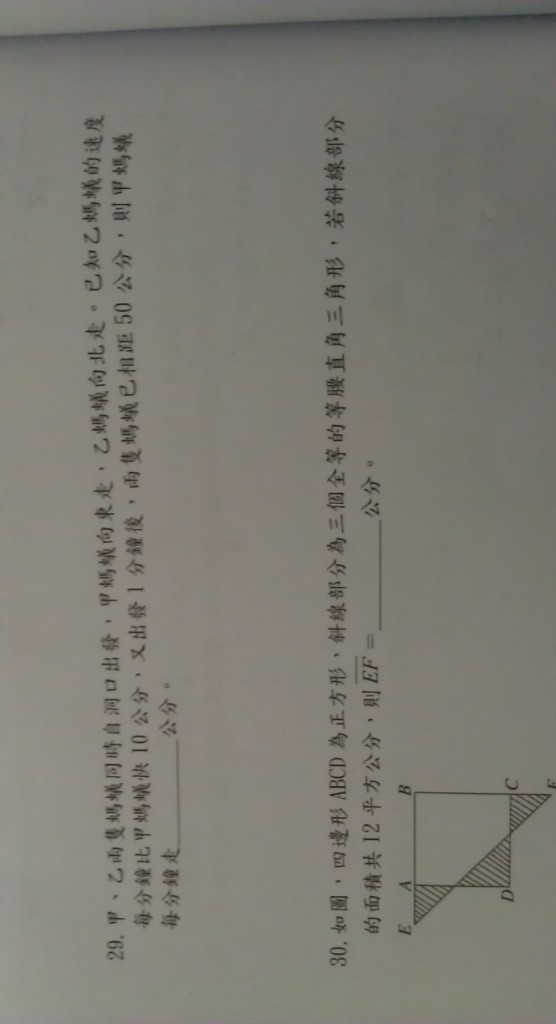 29. 甲、乙兩隻螞蟻同時自洞口出發，甲螞蟻向東走，乙螞蟻向北走。已知乙螞蟻的速度
每分鐘比甲螞蟻快 10 公分，又出發 1 分鐘後，兩隻螞蟻已相距 50 公分，則甲螞蟻
每分鐘走______公分。
30. 如圖，四邊形 ABCD 為正方形，斜線部分為三個全等的等腰直角三角形，若斜線部分
的面積共 12 平方公分，則 EF = ______公分。
E A B
D C
F